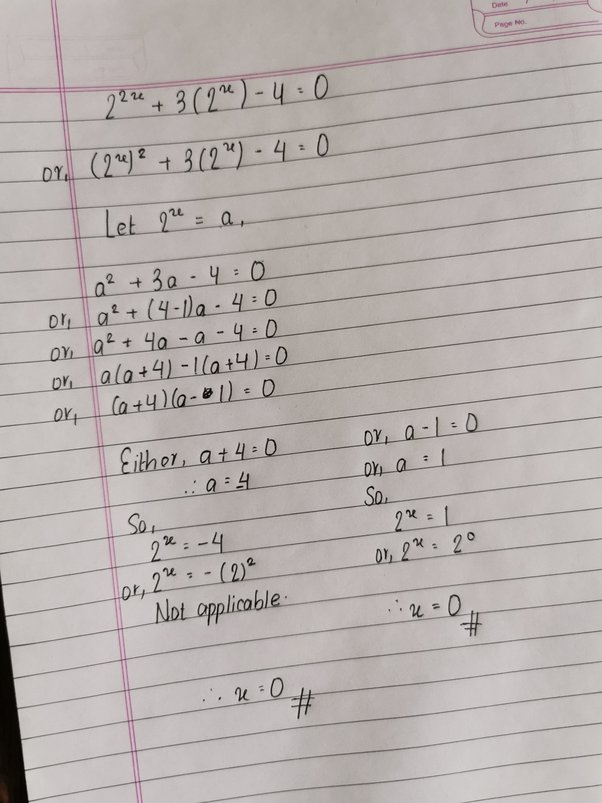 Date
Page No.
2²ˣ + 3(2ˣ) - 4 = 0
or, (2ˣ)² + 3(2ˣ) - 4 = 0
Let 2ˣ = a,
a² + 3a - 4 = 0
or, a² + (4-1)a - 4 = 0
or, a² + 4a - a - 4 = 0
or, a(a+4) - 1(a+4) = 0
or, (a+4)(a-1) = 0
Either, a+4 = 0
∴ a = 4
So,
2ˣ = -4
or, 2ˣ = -(2)²
Not applicable.
or, a-1 = 0
or, a = 1
So,
2ˣ = 1
or, 2ˣ = 2⁰
∴ x = 0 #
∴ x = 0 #